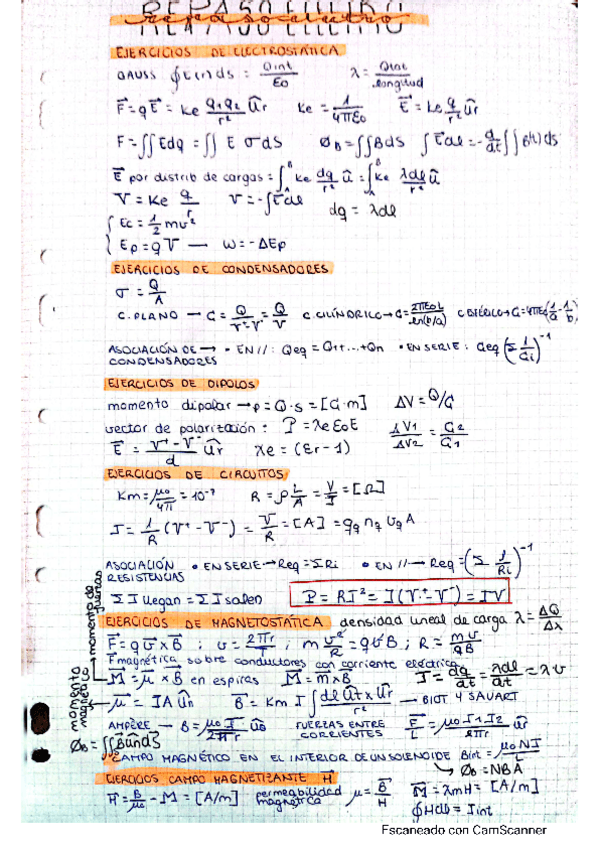 REPASO ENERO
EJERCICIOS DE ELECTROSTÁTICA
GAUSS ∮E(r)ds = Qint/ε0    λ = Qtot/longitud
F⃗ = qE⃗ = Ke q1q2/r² ûr    Ke = 1/4πε0    E⃗ = Ke q/r² ûr
F = ∬Edq = ∬E σdS    ØB = ∬BdS    ∫E⃗dl = -d/dt ∬B(t)ds
E⃗ por distrib de cargas = ∫ᴬᴮ Ke dq/r² û = ∫ᴬᴮ Ke λdl/r² û
V = Ke q/r    V = -∫E⃗dl    dq = λdl
Ec = 1/2 mv²
Ep = qV — W = -ΔEp
EJERCICIOS DE CONDENSADORES
σ = Q/A
C. PLANO → C = Q/V⁺-V⁻ = Q/V    C. CILÍNDRICO → C = 2πε0L/ln(b/a)    C ESFÉRICO → C = 4πε(1/a - 1/b)
ASOCIACIÓN DE → • EN // : Qeq = Q1+...+Qn    • EN SERIE : Ceq (Σ 1/Ci)⁻¹
CONDENSADORES
EJERCICIOS DE DIPOLOS
momento dipolar → p = Q·s = [C·m]    ΔV = Q/C
vector de polarización : P = χe ε0 E    ΔV1/ΔV2 = C2/C1
E⃗ = V⁺-V⁻/d ûr    χe = (εr-1)
EJERCICIOS DE CIRCUITOS
Km = μ0/4π = 10⁻⁷    R = ρ L/A = V/I = [Ω]
I = 1/R (V⁺-V⁻) = V/R = [A] = qq nq vq A
ASOCIACIÓN • EN SERIE → Req = ΣRi    • EN // → Req = (Σ 1/Ri)⁻¹
RESISTENCIAS
Σ I llegan = Σ I salen    P = RI² = I(V⁺-V⁻) = IV
EJERCICIOS DE MAGNETOSTÁTICA densidad lineal de carga λ = ΔQ/Δx
F⃗ = q v⃗ × B⃗ ; v = 2πr/T ; m v²/R = qvB ; R = mv/qB
F⃗ magnética sobre conductores con corriente eléctrica
M⃗ = μ⃗ × B⃗ en espiras    M⃗ = m⃗ × B⃗    I = dq/dt = λdl/dt = λv
momento magnético
μ⃗ = IA ûn    B⃗ = Km I ∫ dl ût x ûr/r² — BIOT Y SAVART
AMPÈRE → B = μ0 I/2πr ûθ    FUERZAS ENTRE CORRIENTES    F⃗/L = μ0 I1 I2/2πr ûr
ØB = ∬B⃗ûndS
CAMPO MAGNÉTICO EN EL INTERIOR DE UN SOLENOIDE Bint = μ0NI/L
→ ØB = NBA
EJERCICIOS CAMPO MAGNETIZANTE H⃗
H⃗ = B/μ0 - M = [A/m]    permeabilidad magnética μ = B⃗/H    M⃗ = χmH = [A/m]
∮Hdl = Iint
Escaneado con CamScanner